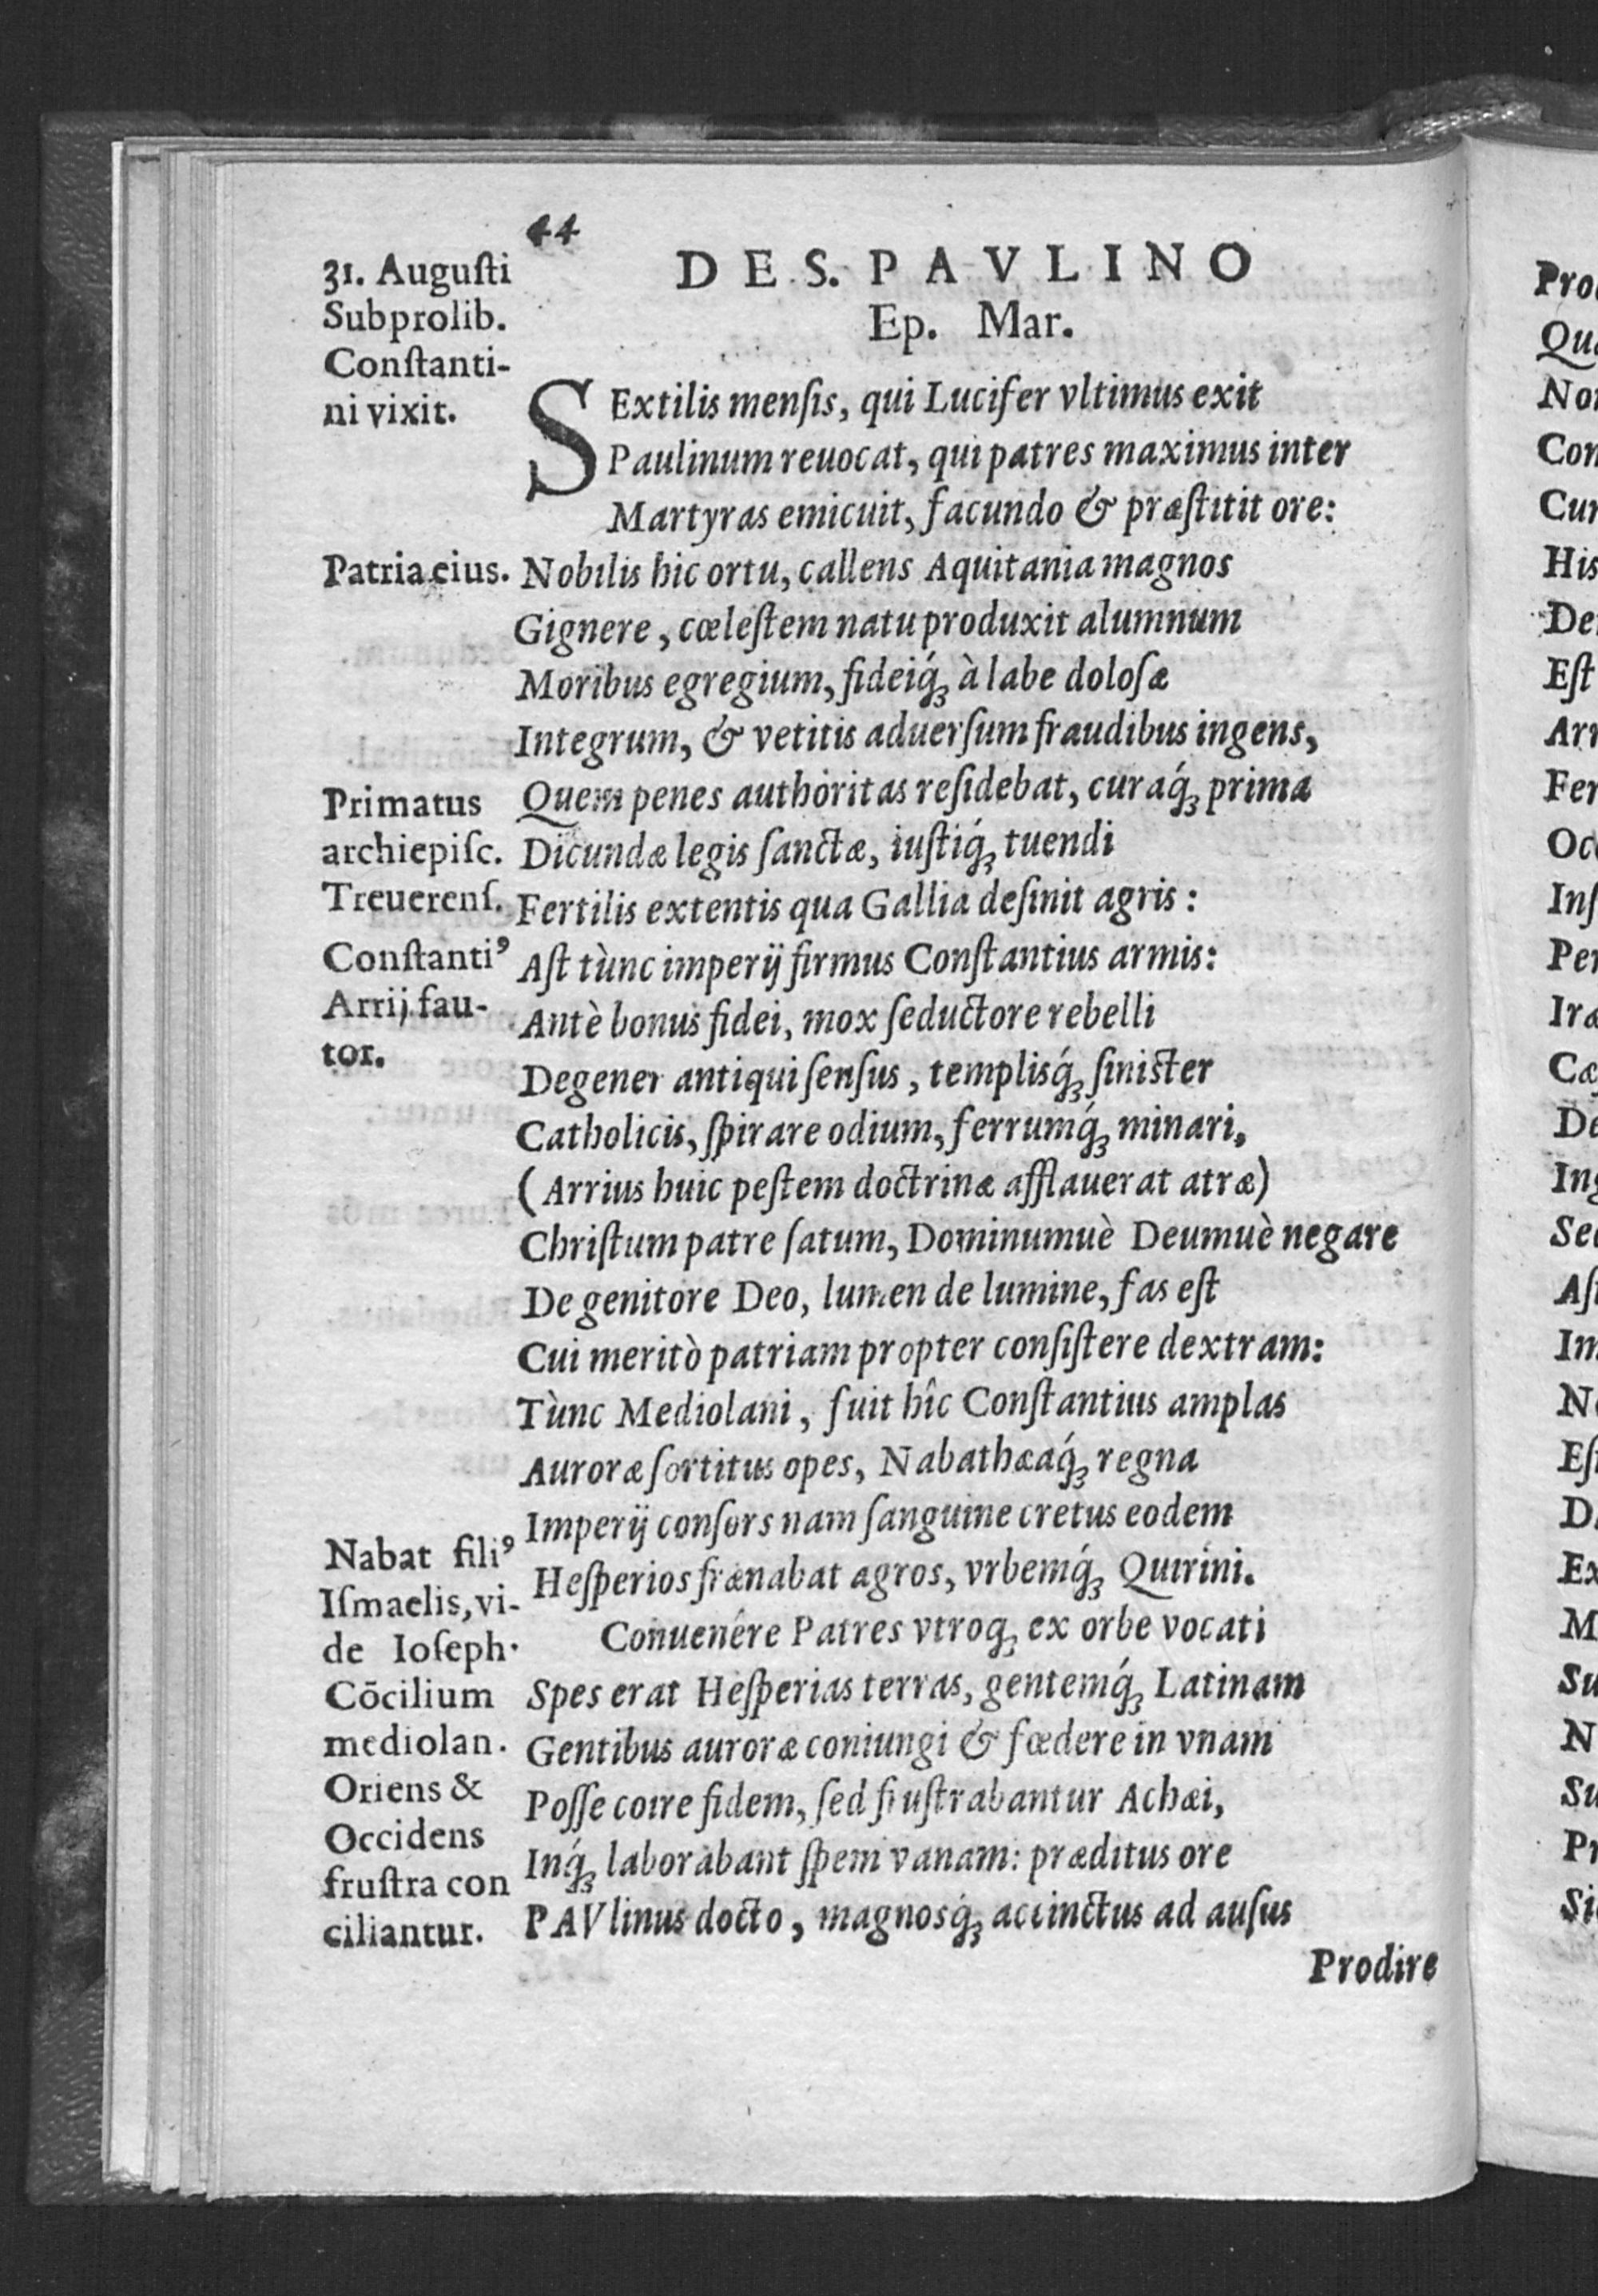 44
DE S. PAVLINO
Ep. Mar.
31. Auguſti
Subprolib.
Conſtanti-
ni vixit.
SExtilis menſis, qui Lucifer vltimus exit
Paulinum reuocat, qui patres maximus inter
Martyras emicuit, facundo & præſtitit ore:
Patria eius.
Nobilis hic ortu, callens Aquitania magnos
Gignere, cœleſtem natu produxit alumnum
Moribus egregium, fideiq́ꝫ à labe doloſæ
Integrum, & vetitis aduerſum fraudibus ingens,
Primatus
archiepiſc.
Treuerenſ.
Quem penes authoritas reſidebat, curaq́ꝫ prima
Dicundæ legis ſanctæ, iuſtiq́ꝫ tuendi
Fertilis extentis qua Gallia deſinit agris:
Conſtantiꝰ
Arrij fau-
tor.
Aſt tùnc imperij firmus Conſtantius armis:
Antè bonus fidei, mox ſeductore rebelli
Degener antiqui ſenſus, templisq́ꝫ ſiniſter
Catholicis, ſpirare odium, ferrumq́ꝫ minari,
(Arrius huic peſtem doctrinæ afflauerat atræ)
Chriſtum patre ſatum, Dominumuè Deumuè negare
De genitore Deo, lumen de lumine, fas eſt
Cui meritò patriam propter conſiſtere dextram:
Tùnc Mediolani, fuit hîc Conſtantius amplas
Auroræ ſortitus opes, Nabathæaq́ꝫ regna
Imperij conſors nam ſanguine cretus eodem
Nabat filiꝰ
Iſmaelis, vi-
de Ioſeph.
Cōcilium
mediolan.
Oriens &
Occidens
fruſtra con
ciliantur.
Heſperios frænabat agros, vrbemq́ꝫ Quirini.
Conuenére Patres vtroqꝫ ex orbe vocati
Spes erat Heſperias terras, gentemq́ꝫ Latinam
Gentibus auroræ coniungi & fœdere in vnam
Poſſe coire fidem, ſed fruſtrabantur Achæi,
Inq́ꝫ laborabant ſpem vanam: præditus ore
PAVlinus docto, magnosq́ꝫ accinctus ad auſus
Prodire